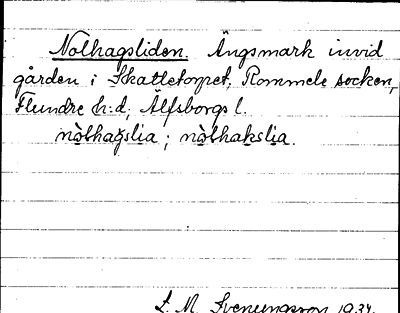 Nolhagsliden. Ängsmark invid
gården i Skattetorpet, Rommele socken,
Flundre h:d, Älfsborgs l.
nòlhagslia ; nòlhakslia.
L. M. Svenungsson 1934.